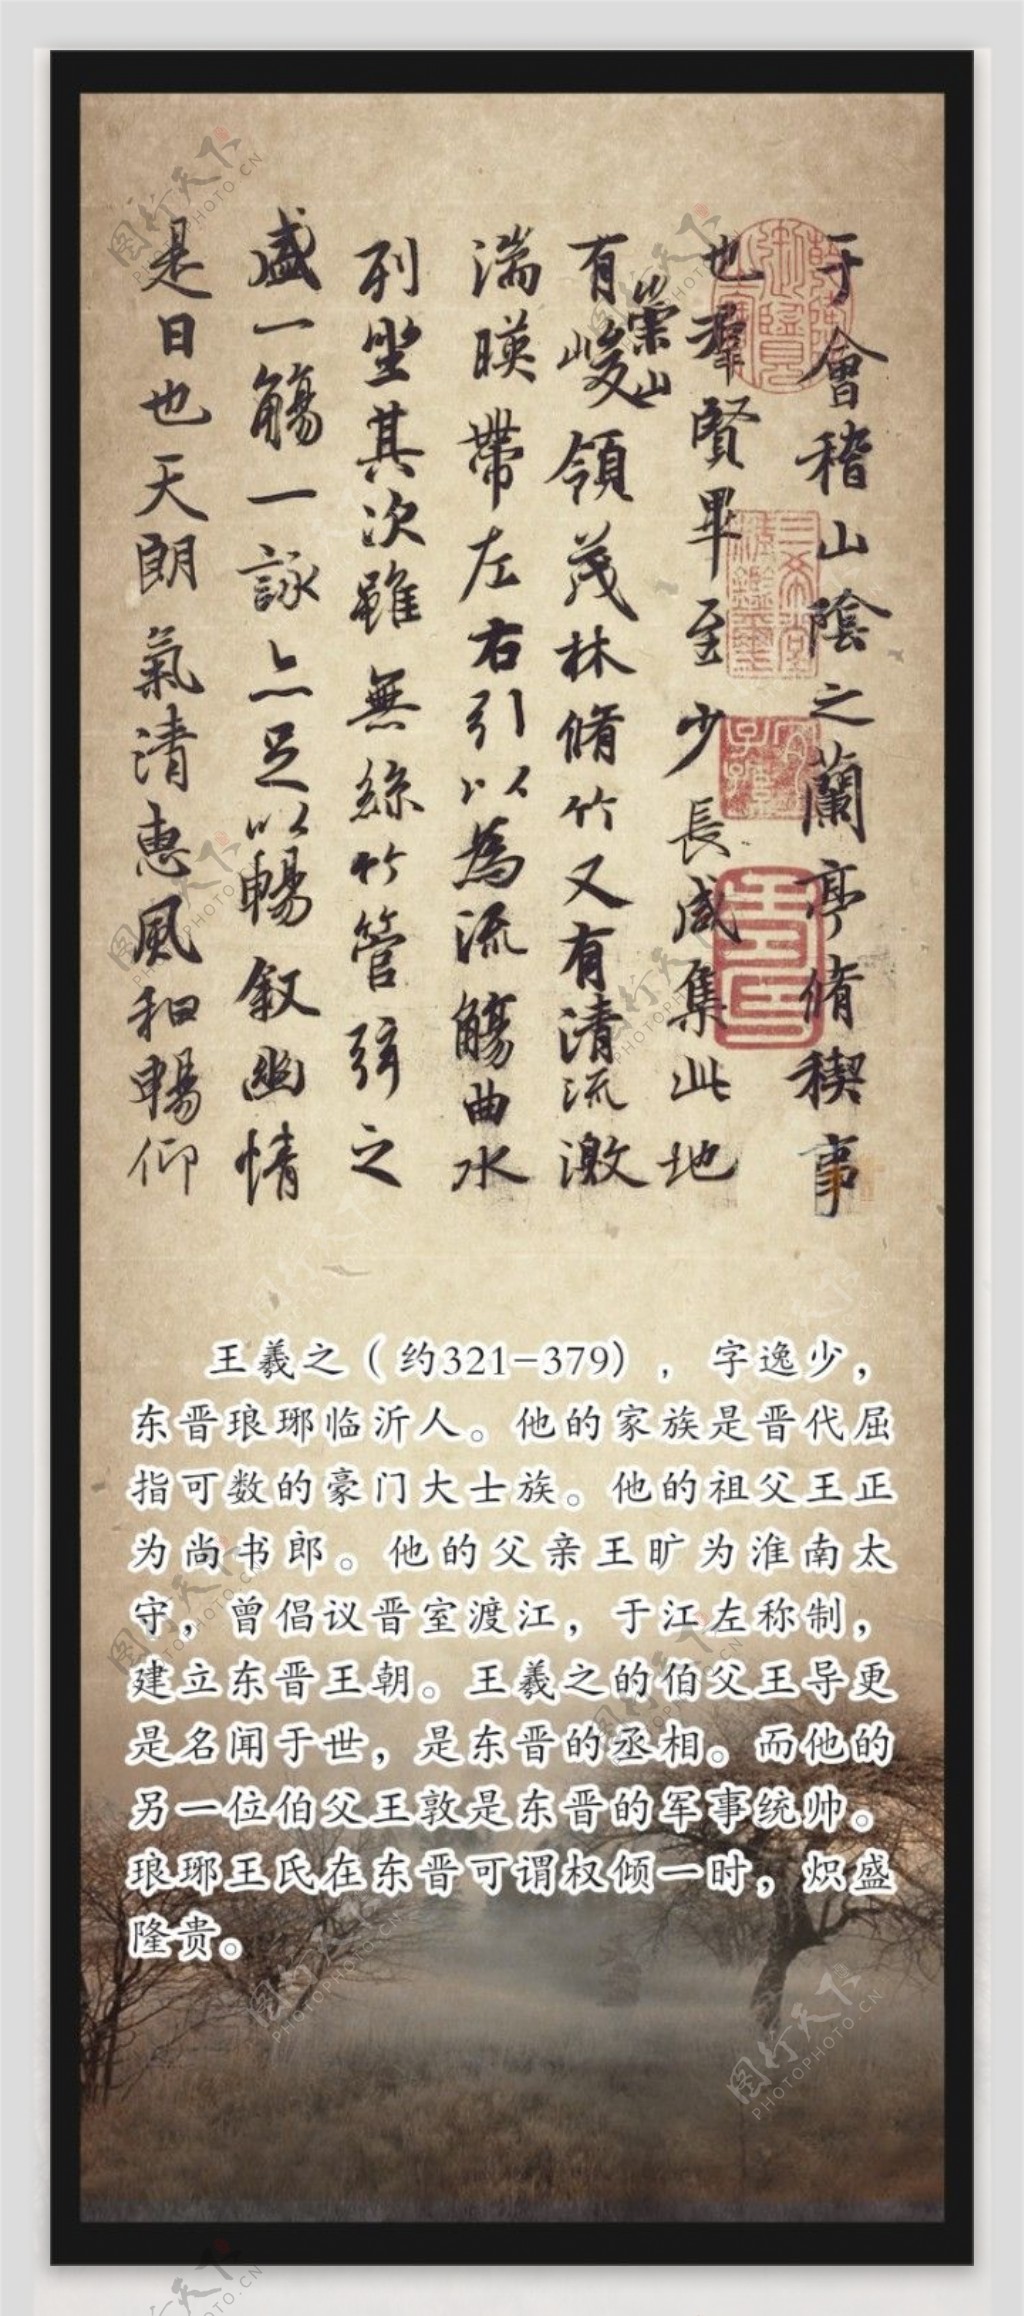 于會稽山陰之蘭亭脩稧事
也羣賢畢至少長咸集此地
有崇山峻領茂林脩竹又有清流激
湍暎帶左右引以為流觴曲水
列坐其次雖無絲竹管弦之
盛一觴一詠亦足以暢叙幽情
是日也天朗氣清惠風和暢仰
王羲之（约321-379），字逸少，
东晋琅琊临沂人。他的家族是晋代屈
指可数的豪门大士族。他的祖父王正
为尚书郎。他的父亲王旷为淮南太
守，曾倡议晋室渡江，于江左称制，
建立东晋王朝。王羲之的伯父王导更
是名闻于世，是东晋的丞相。而他的
另一位伯父王敦是东晋的军事统帅。
琅琊王氏在东晋可谓权倾一时，炽盛
隆贵。
图行天下
PHOTOPHOTO.CN